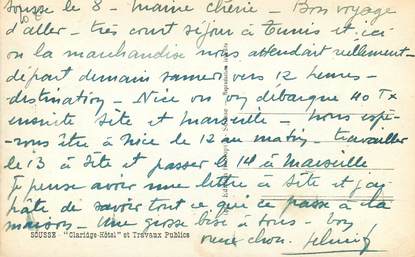 Sousse le 8 - Mame chérie - Bon voyage
d'aller - très court séjour à Tunis et ici
ou la marchandise nous attendait réellement -
départ demain samedi vers 12 heures -
destination - Nice ou on débarque 40 Tx
ensuite Sète et Marseille - Nous espé-
rons être à Nice le 12 au matin - travailler
le 13 à Sète et passer le 14 à Marseille
Je pense avoir une lettre à Sète et j'ai
hâte de savoir tout ce qui ce passe à la
maison - Une grosse bise à tous - bon
SOUSSE - "Claridge-Hôtel" et Travaux Publics
vieux chou.